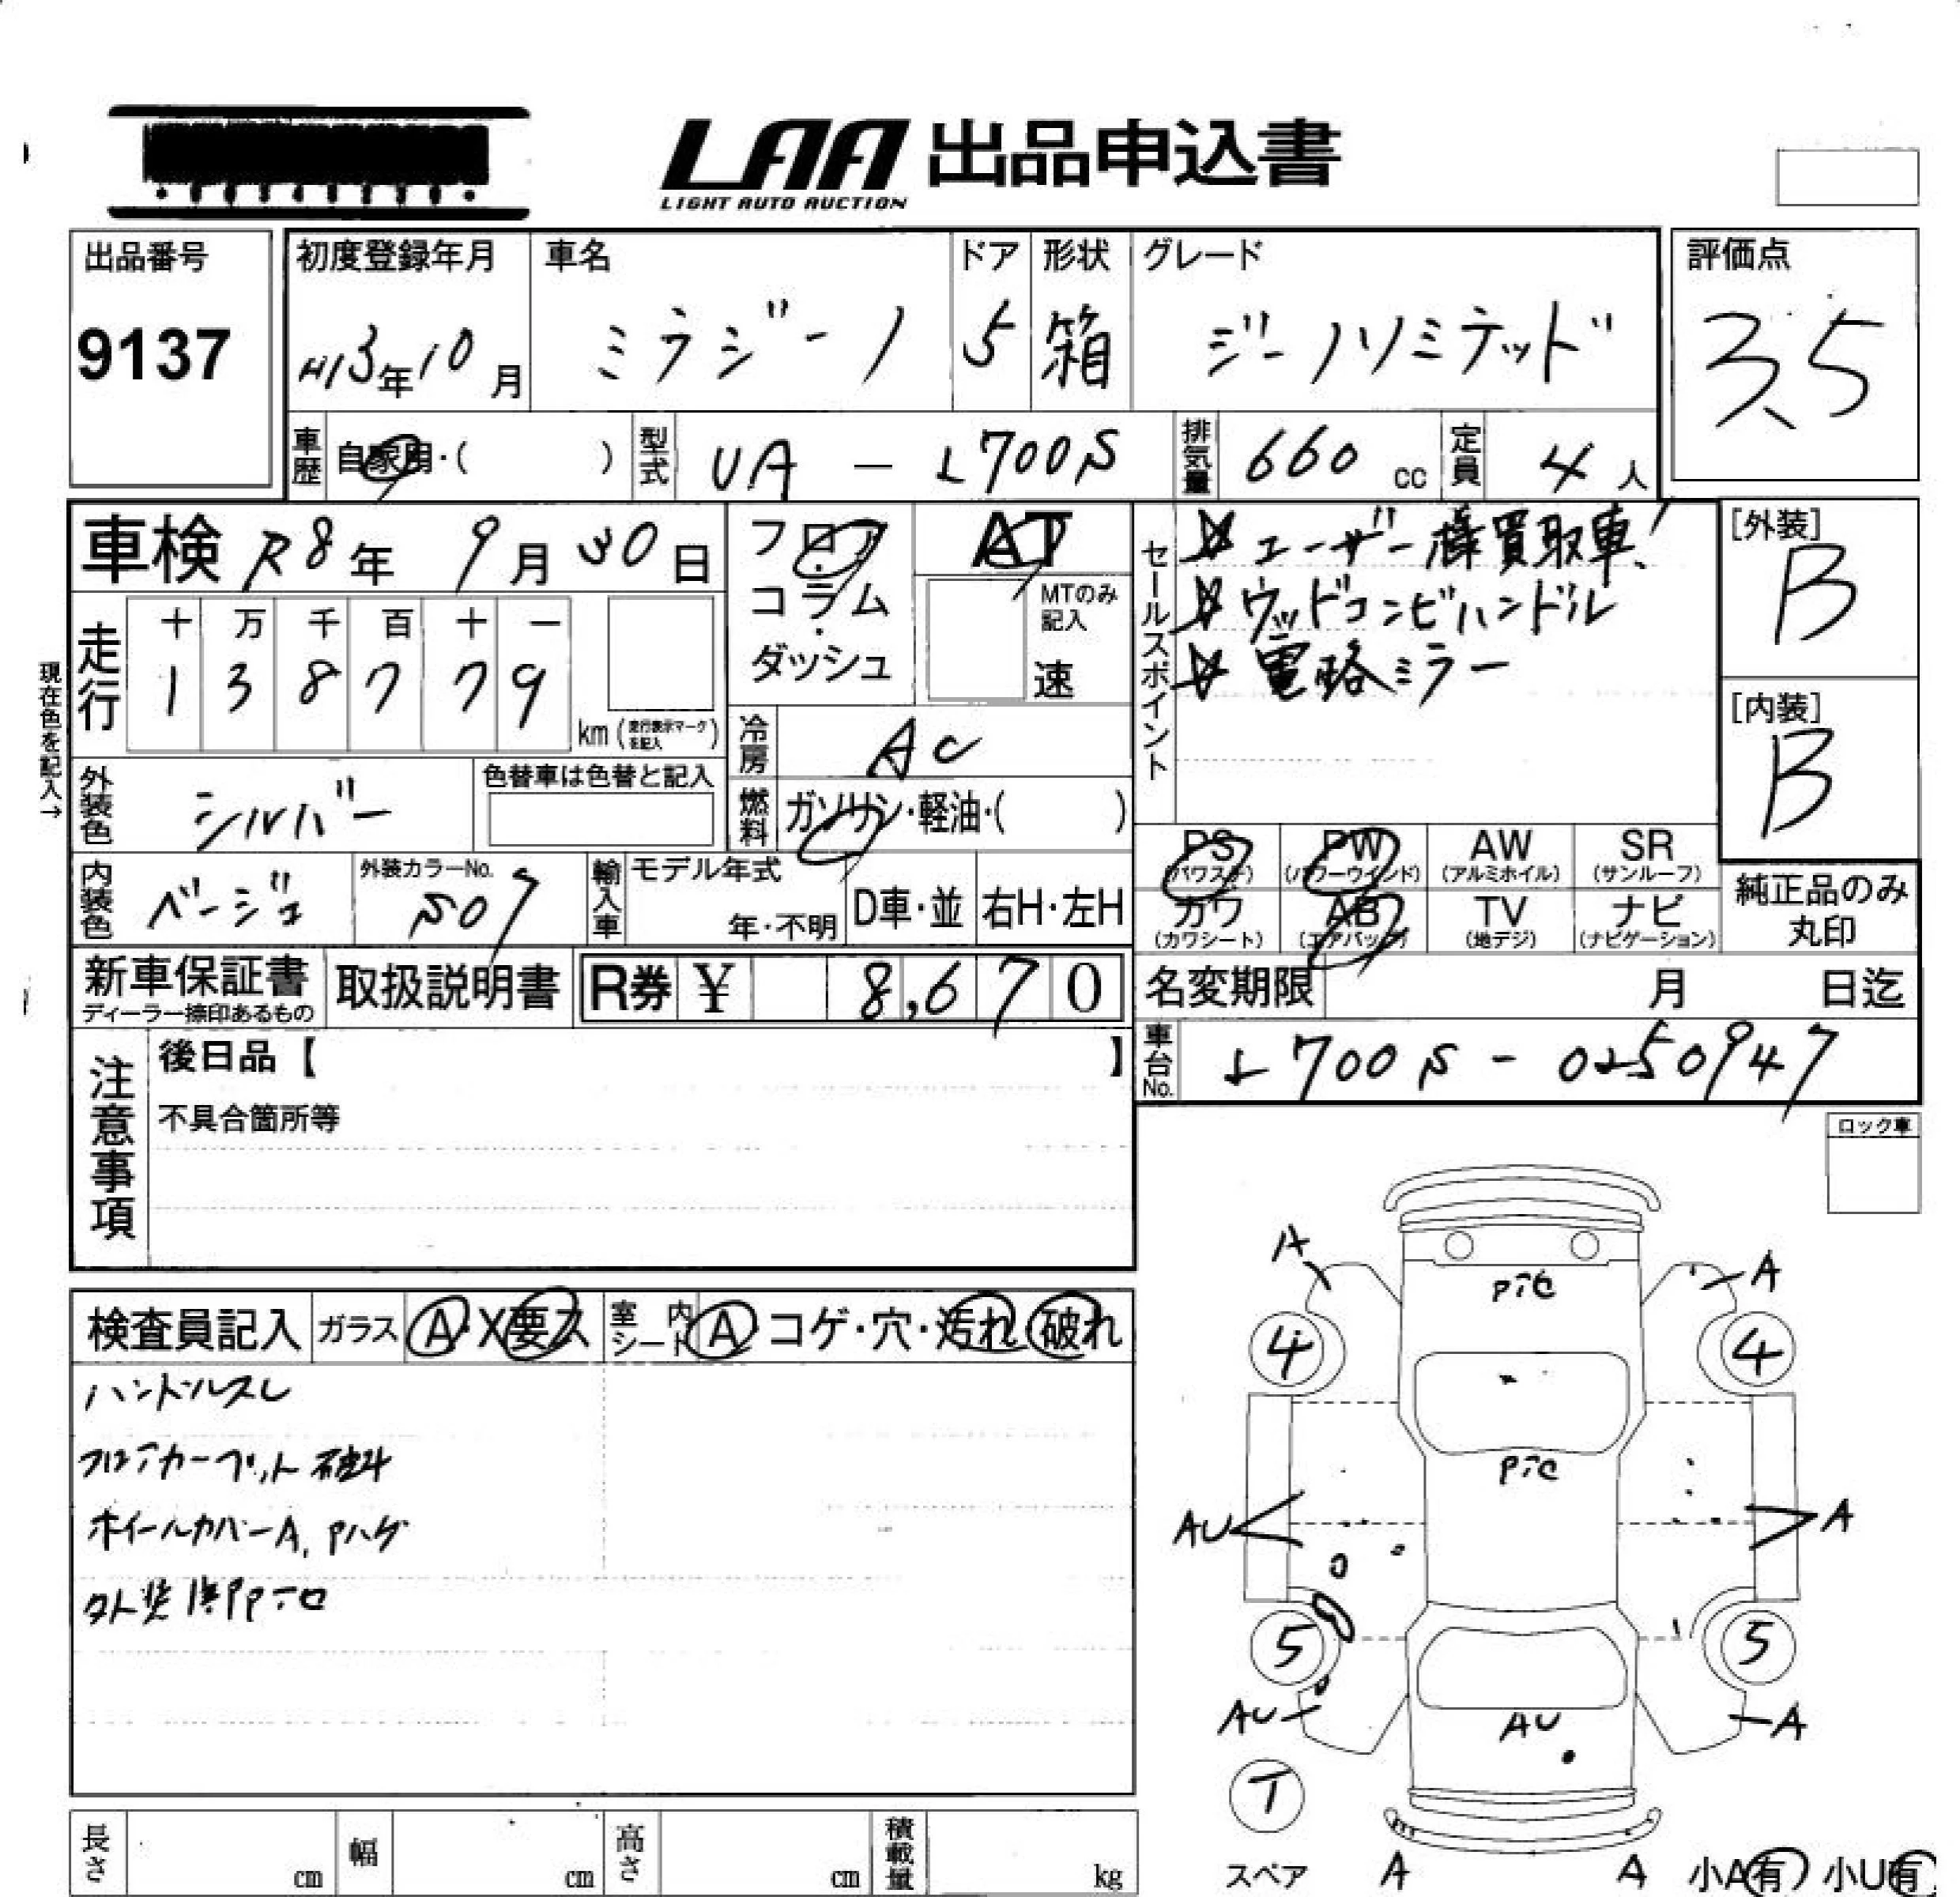 LAA 出品申込書
LIGHT AUTO AUCTION
出品番号
9137
初度登録年月
H13年10月
車名
ミラジーノ
ドア
5
形状
箱
グレード
ジーノリミテッド
評価点
3.5
車歴
自家用・( )
型式
UA - L700S
排気量
660 cc
定員
4人
車検 R8年 9月30日
走行
十 万 千 百 十 一
1 3 8 7 7 9
km (走行表示マークを記入)
現在色を記入→
フロア
コラム
・
ダッシュ
AT
MTのみ
記入
速
セールスポイント
☆ ユーザー様買取車!
☆ ウッドコンビハンドル
☆ 電格ミラー
[外装]
B
[内装]
B
外装色
シルバー
色替車は色替と記入
冷房
AC
燃料
ガソリン・軽油・( )
内装色
ベージュ
外装カラーNo.
S07
輸入車
モデル年式
年・不明
D車・並
右H・左H
PS
(パワステ)
PW
(パワーウインド)
AW
(アルミホイル)
SR
(サンルーフ)
カワ
(カワシート)
AB
(エアバッグ)
TV
(地デジ)
ナビ
(ナビゲーション)
純正品のみ
丸印
新車保証書
ディーラー捺印あるもの
取扱説明書
R券 ¥ 8,670
名変期限 月 日迄
車台No.
L700S - 0250947
注意事項
後日品【 】
不具合箇所等
ロック車
検査員記入
ガラス
A・X要ス
室内
シート
A・コゲ・穴・汚れ・破れ
ハンドルスレ
フロアカーペット破れ
ホイールカバーA, Pハゲ
A
A
Pテロ
4
4
Pテロ
AU
A
5
5
AU
AU
A
T
スペア
A
A
小A有 小U有
長さ cm
幅 cm
高さ cm
積載量 kg